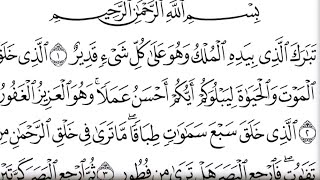 بِسْمِ ٱللَّهِ ٱلرَّحْمَٰنِ ٱلرَّحِيمِ
تَبَٰرَكَ ٱلَّذِى بِيَدِهِ ٱلْمُلْكُ وَهُوَ عَلَىٰ كُلِّ شَىْءٍ قَدِيرٌ ١ ٱلَّذِى خَلَقَ
ٱلْمَوْتَ وَٱلْحَيَوٰةَ لِيَبْلُوَكُمْ أَيُّكُمْ أَحْسَنُ عَمَلًا ۚ وَهُوَ ٱلْعَزِيزُ ٱلْغَفُورُ
٢ ٱلَّذِى خَلَقَ سَبْعَ سَمَٰوَٰتٍ طِبَاقًا ۖ مَّا تَرَىٰ فِى خَلْقِ ٱلرَّحْمَٰنِ مِن
تَفَٰوُتٍ ۖ فَٱرْجِعِ ٱلْبَصَرَ هَلْ تَرَىٰ مِن فُطُورٍ ٣ ثُمَّ ٱرْجِعِ ٱلْبَصَرَ كَرَّتَيْنِ